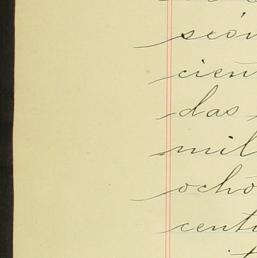 sción
cien
das
mil
ocho
centi